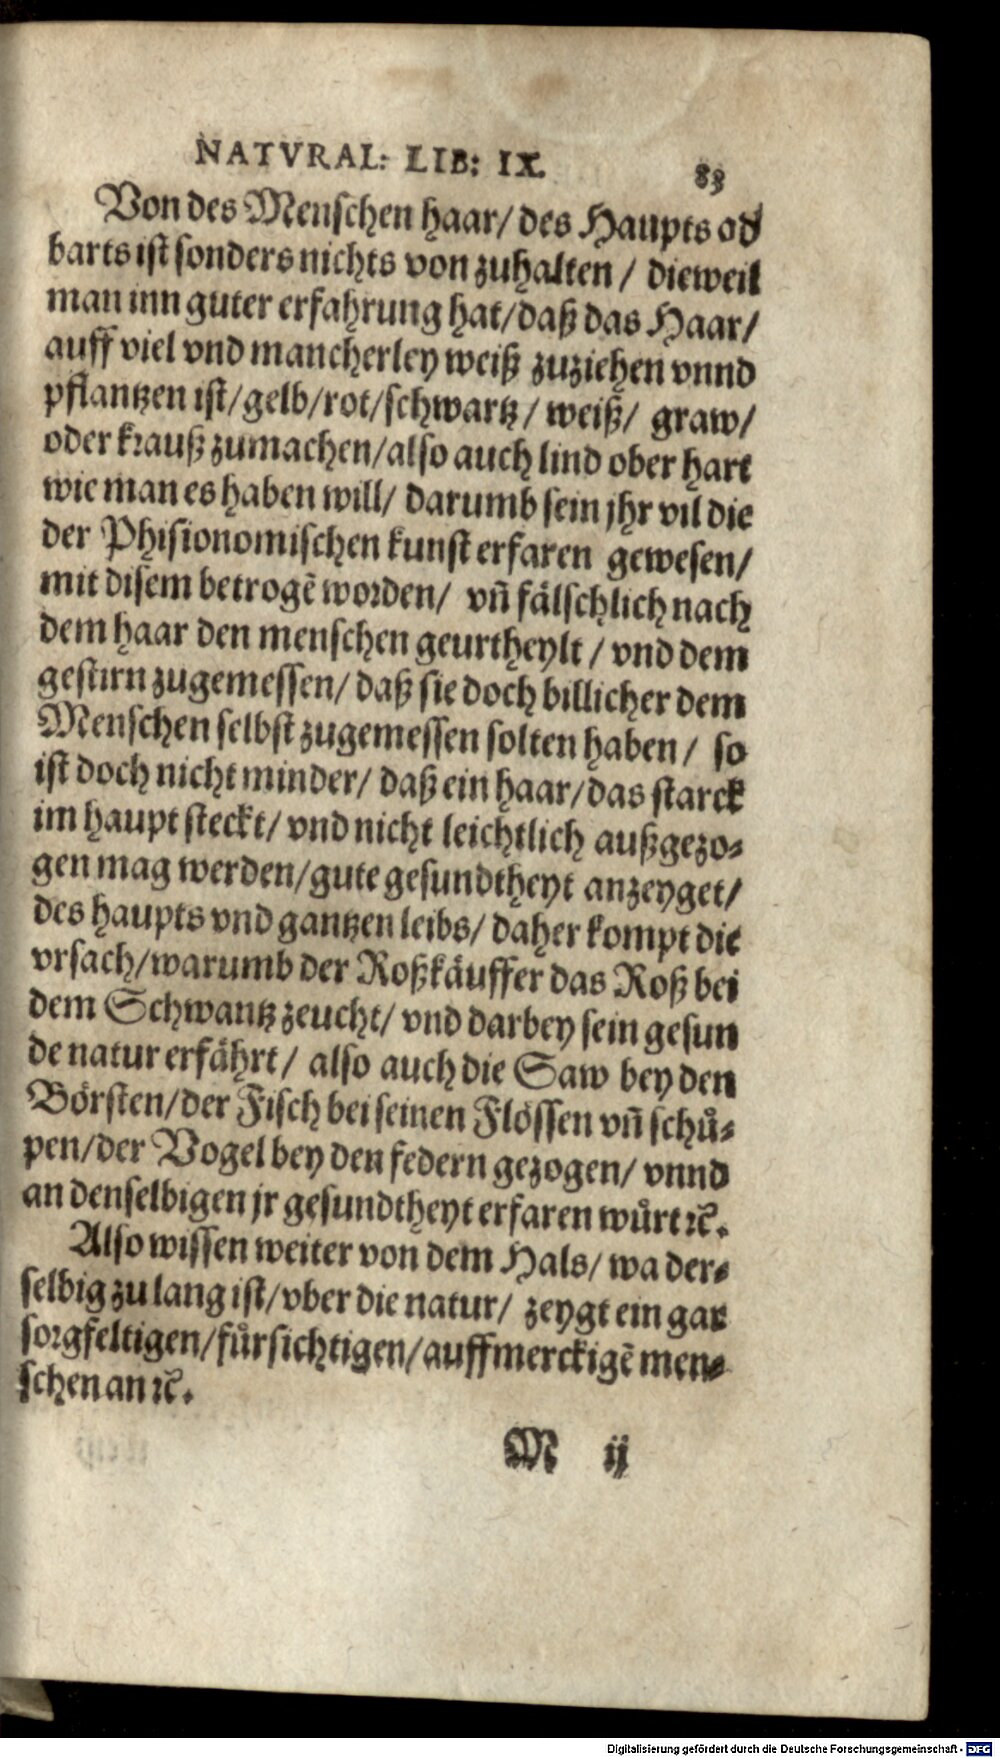 NATVRAL: LIB: IX. 83
Von des Menschen haar/ des Haupts od'
barts ist sonders nichts von zuhalten / dieweil
man inn guter erfahrung hat/daß das Haar/
auff viel vnd mancherley weiß zuziehen vnnd
pflantzen ist/gelb/rot/schwartz/ weiß/ graw/
oder krauß zumachen/also auch lind ober hart
wie man es haben will/ darumb sein jhr vil die
der Phisionomischen kunst erfaren gewesen/
mit disem betrogẽ worden/ vñ fälschlich nach
dem haar den menschen geurtheylt / vnd dem
gestirn zugemessen/ daß sie doch billicher dem
Menschen selbst zugemessen solten haben/ so
ist doch nicht minder/ daß ein haar/das starck
im haupt steckt/ vnd nicht leichtlich außgezo-
gen mag werden/gute gesundtheyt anzeyget/
des haupts vnd gantzen leibs/ daher kompt die
vrsach/warumb der Roßkäuffer das Roß bei
dem Schwantz zeucht/ vnd darbey sein gesun
de natur erfährt/ also auch die Saw bey den
Börsten/der Fisch bei seinen Flössen vñ schů-
pen/der Vogel bey den federn gezogen/ vnnd
an denselbigen jr gesundtheyt erfaren wůrt ꝛc̃.
Also wissen weiter von dem Hals/ wa der-
selbig zu lang ist/vber die natur/ zeygt ein gar
sorgfeltigen/fůrsichtigen/auffmerckigẽ men-
schen an ꝛc̃.
M ij
Digitalisierung gefördert durch die Deutsche Forschungsgemeinschaft - DFG